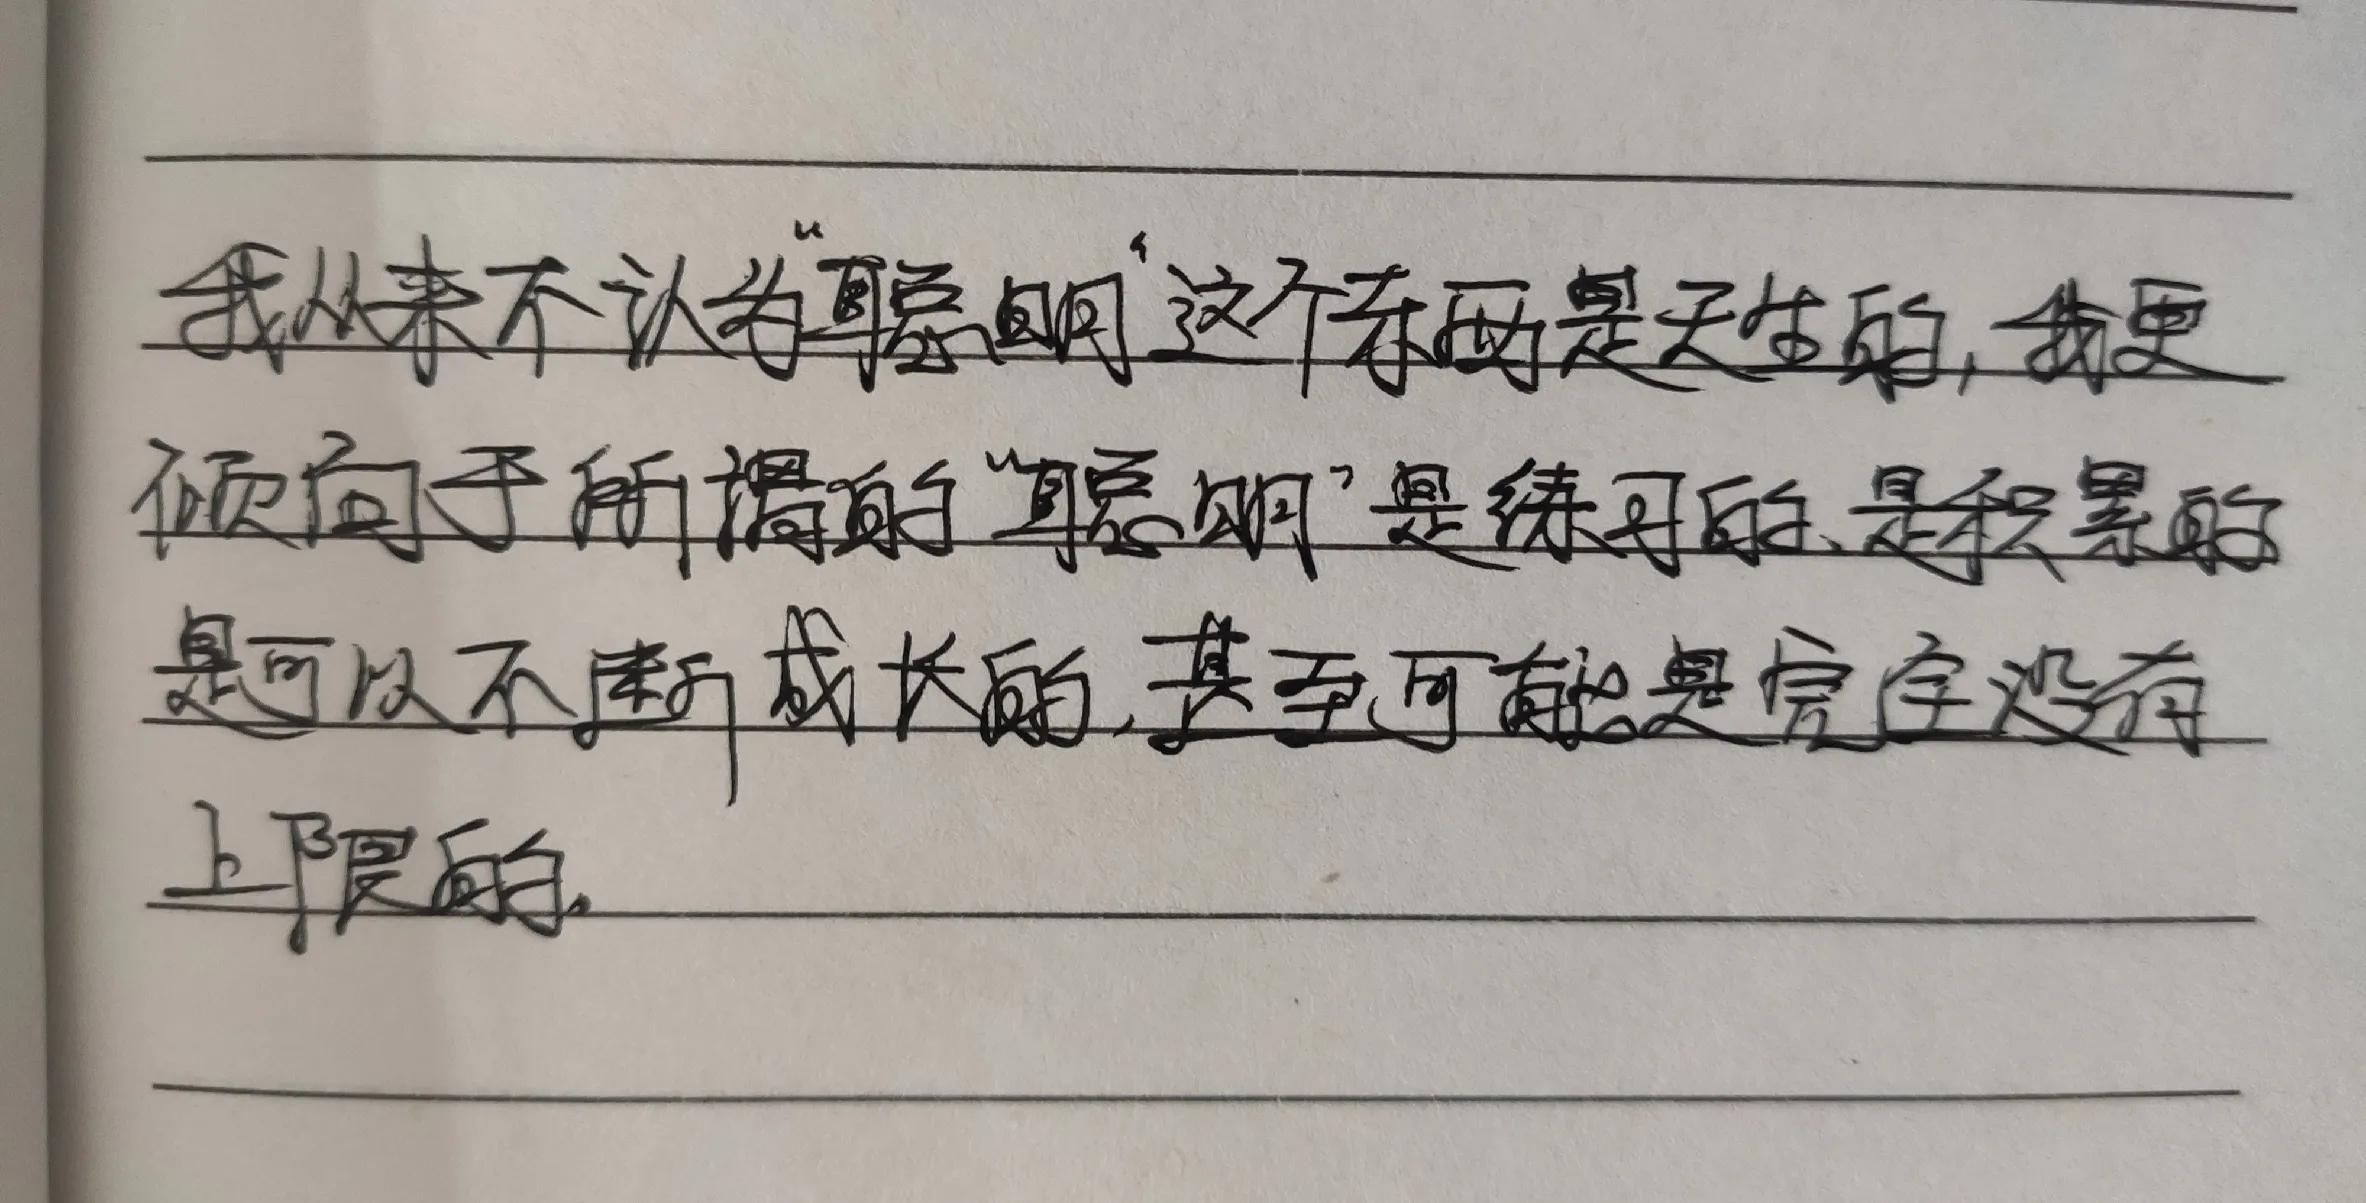 我从来不认为“聪明”这个东西是天生的,我更
倾向于所谓的“聪明”是练习的、是积累的
是可以不断成长的,甚至可能是完全没有
上限的。